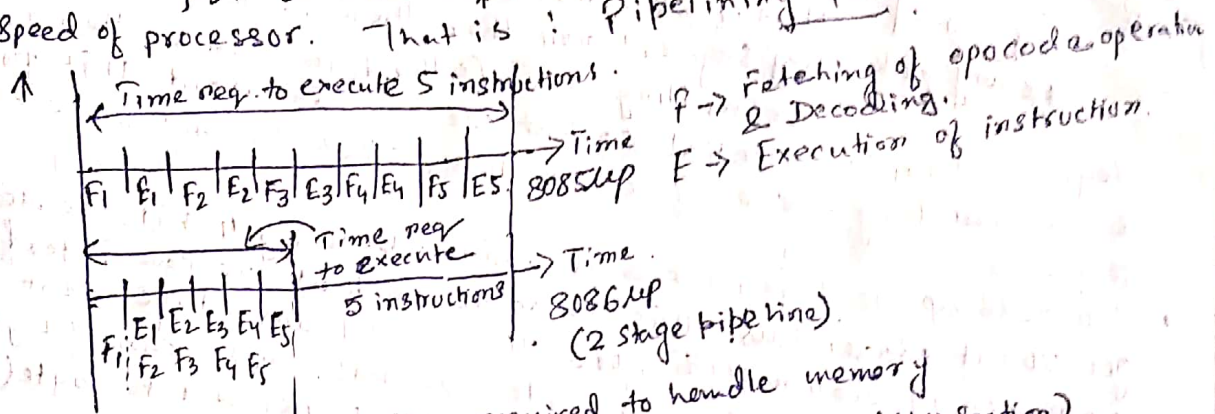 Speed of processor. That is : Pipelining
Time req. to execute 5 instructions.
F → Fetching of opocode operation
& Decoding.
E → Execution of instruction.
→ Time
8085 μp
F1 E1 F2 E2 F3 E3 F4 E4 F5 E5
Time req
to execute
5 instructions
→ Time.
8086 μp
(2 stage pipeline)
F1 E1 E2 E3 E4 E5
F2 F3 F4 F5
to handle memory